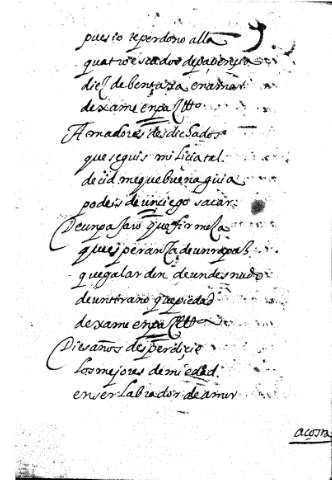 puesto te perdono alla
quatro escudos de paciencia
diez de bentaxa en amar
dexame en paz &tto
Amadores desdichados
que seguis milicia tal
decidme que buena guia
podeis de un ciego sacar
De un pajaro que firmeza
que esperança de un rapaz
que galardon de un desnudo
de un tirano que piedad
dexame en paz &tto
Dies años desperdicie
los mejores de mi edad
en ser labrador de amor
acosta